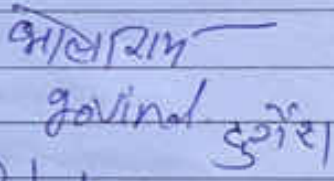 भोलाराम
govind
दुर्गेश